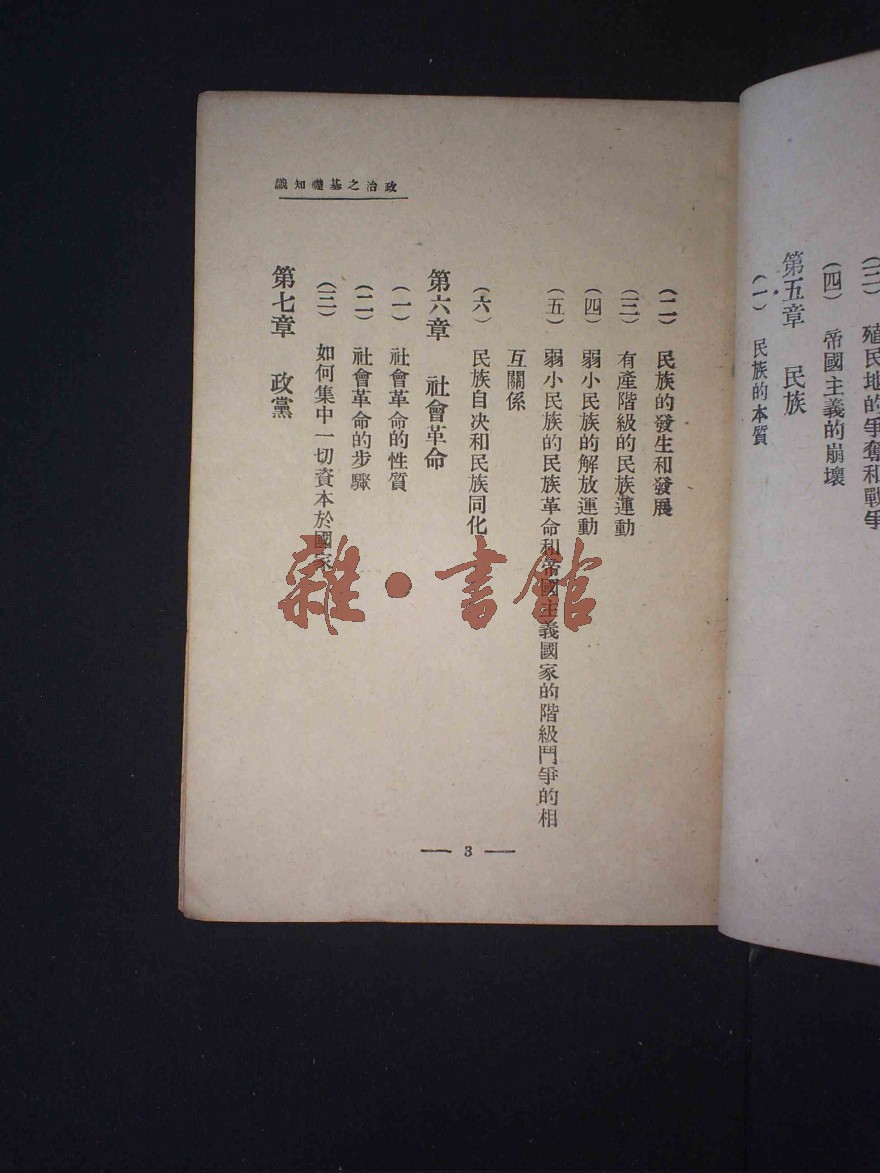 (三) 殖民地的爭奪和戰爭
(四) 帝國主義的崩壞
第五章 民族
(一) 民族的本質
政治之基礎知識
(二) 民族的發生和發展
(三) 有產階級的民族運動
(四) 弱小民族的解放運動
(五) 弱小民族的民族革命和帝國主義國家的階級鬥爭的相
互關係
(六) 民族自决和民族同化
第六章 社會革命
(一) 社會革命的性質
(二) 社會革命的步驟
(三) 如何集中一切資本於國家
第七章 政黨
— 3 —
雜·書館